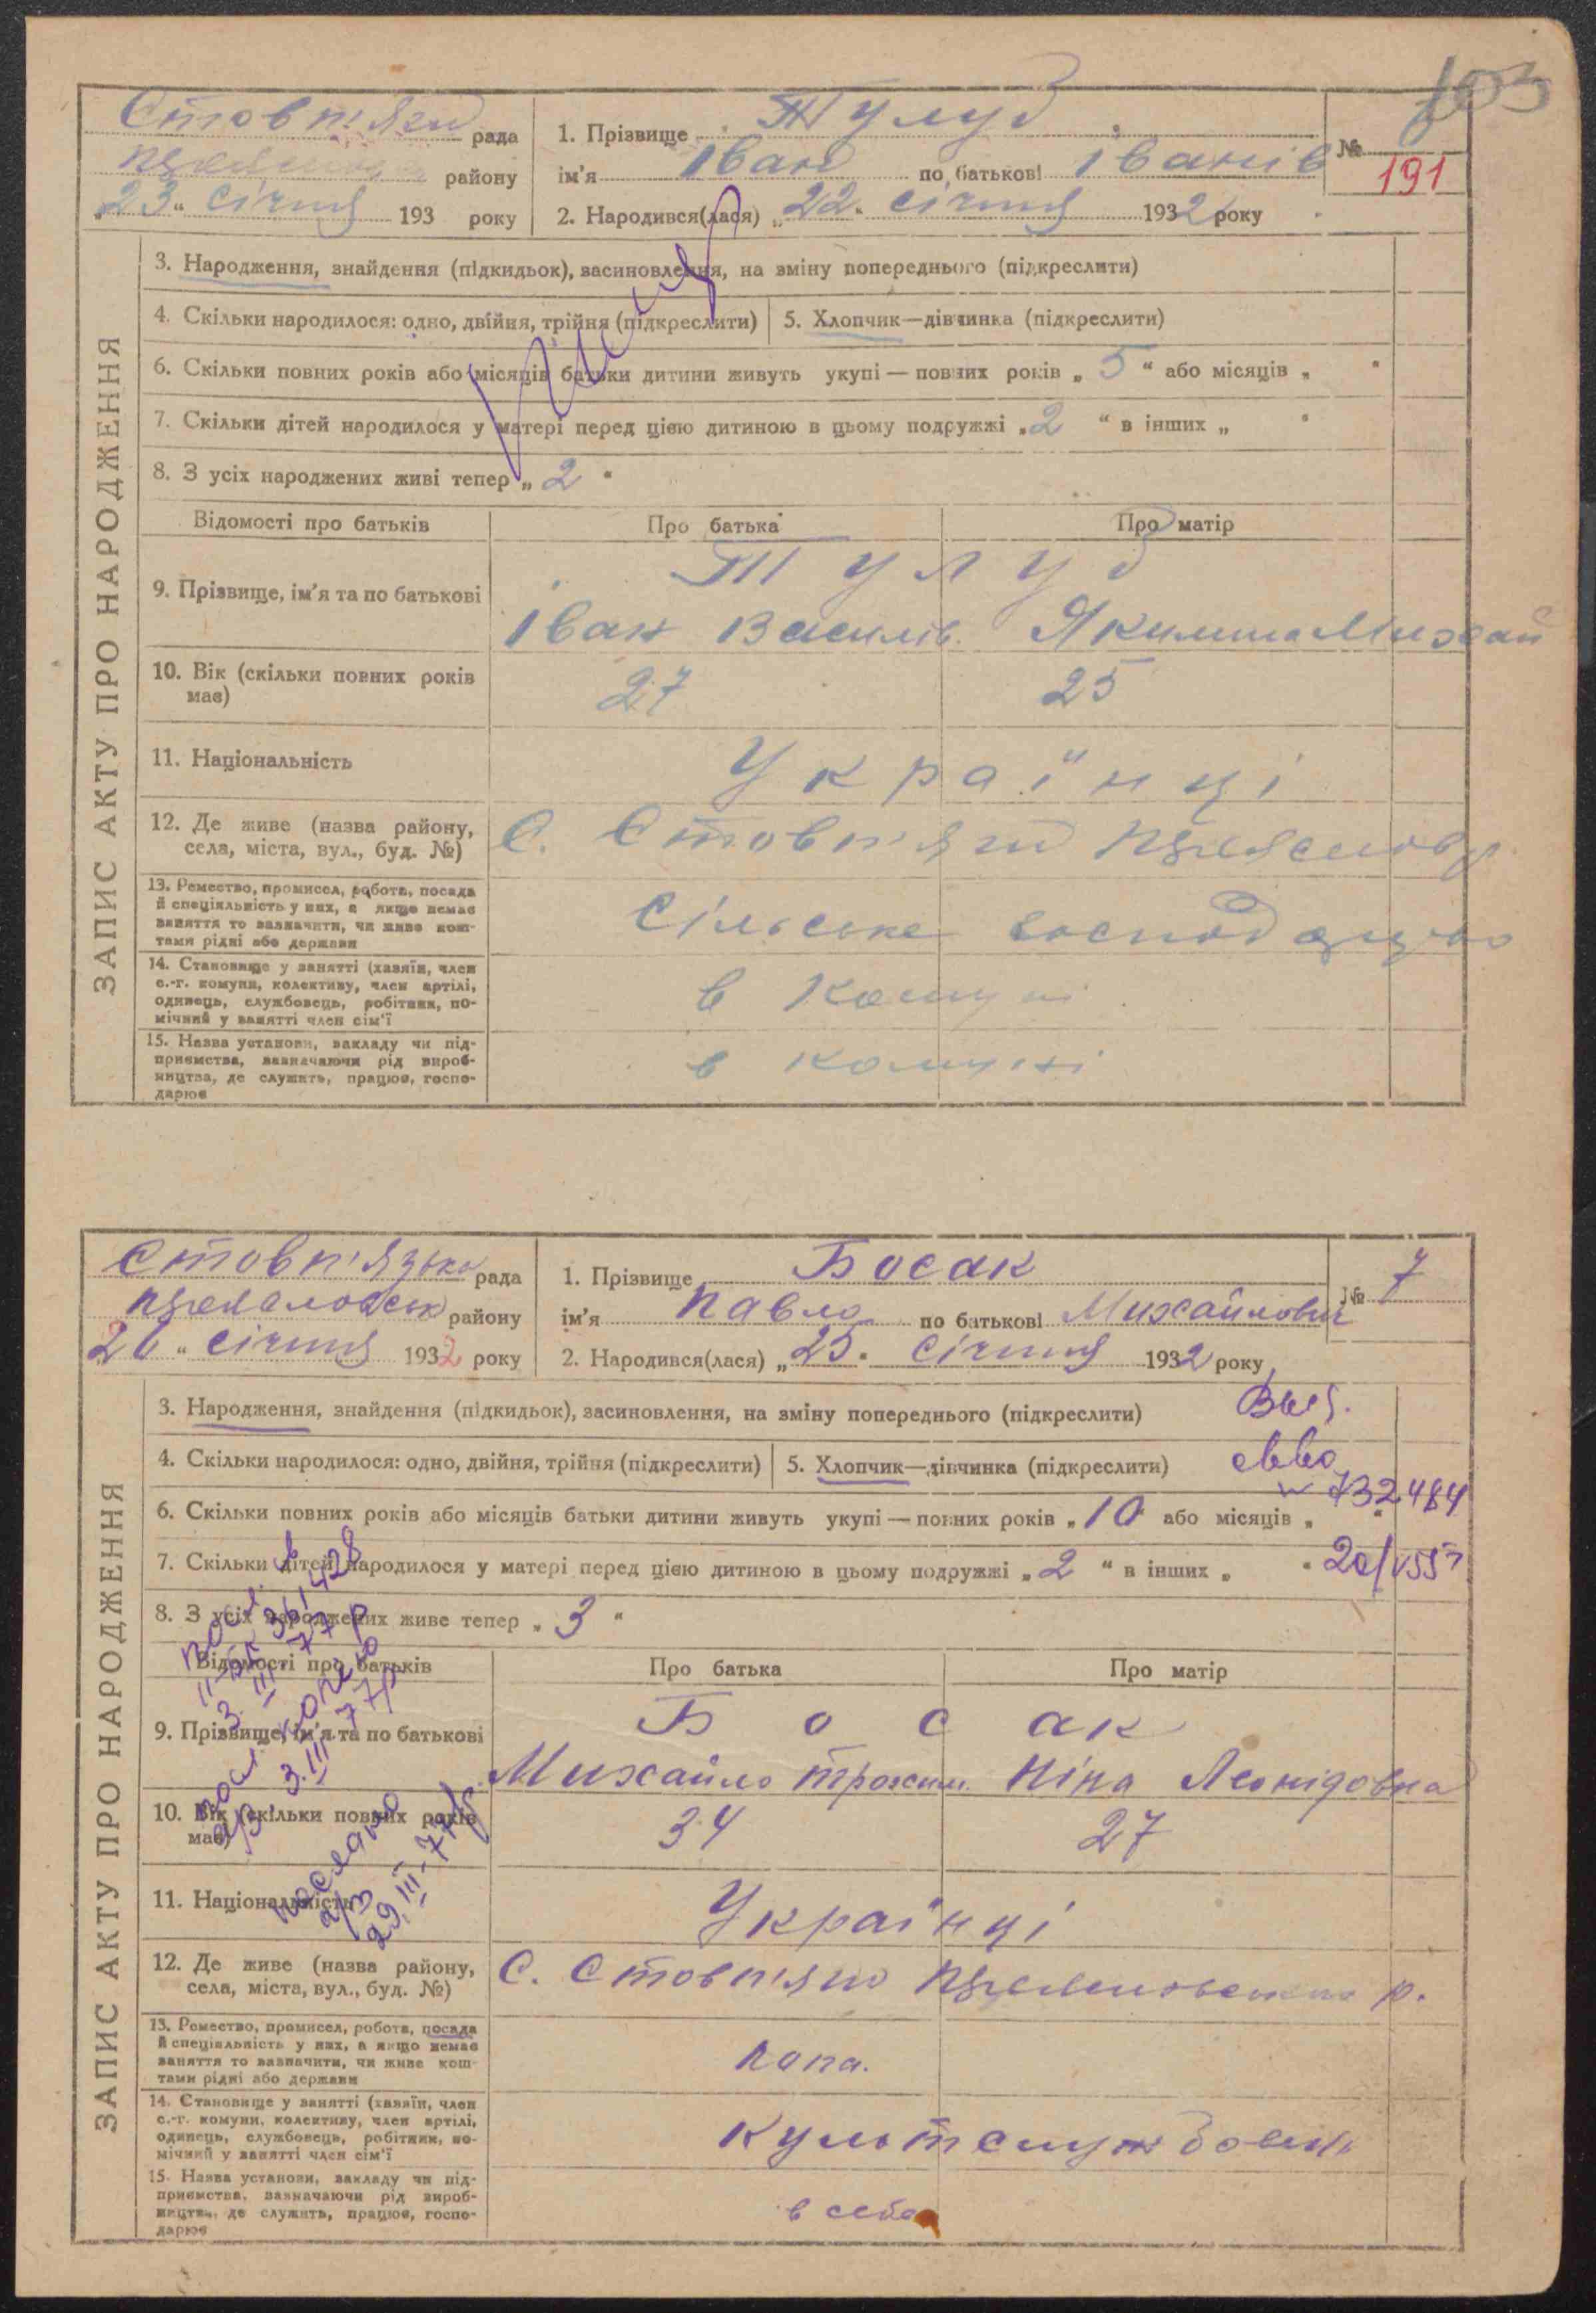 103
Стовп'яги рада
району
„23“ січня 193 року
1. Прізвище Тулуб
ім'я Іван по батькові Іванів
2. Народився(лася) „22“ січня 1932 року
№
191
ЗАПИС АКТУ ПРО НАРОДЖЕННЯ
3. Народження, знайдення (підкидьок), засиновлення, на зміну попереднього (підкреслити)
4. Скільки народилося: одно, двійня, трійня (підкреслити)
5. Хлопчик—дівчинка (підкреслити)
6. Скільки повних років або місяців батьки дитини живуть укупі — повних років „ 5 “ або місяців „ “
7. Скільки дітей народилося у матері перед цією дитиною в цьому подружжі „ 2 “ в інших „ “
8. З усіх народжених живі тепер „ 2 “
Відомості про батьків
Про батька
Про матір
9. Прізвище, ім'я та по батькові
Тулуб
Іван Василів. Якилина Михай
10. Вік (скільки повних років
має)
27
25
11. Національність
Українці
12. Де живе (назва району,
села, міста, вул., буд. №)
С. Стовп'яги
13. Ремество, промисел, робота, посада
й спеціяльність у них, а якщо немає
заняття то зазначити, чи живе кош-
тами рідні або держави
Сільське
14. Становище у занятті (хазяїн, член
с.-г. комуни, колективу, член артілі,
одинець, службовець, робітник, по-
мічний у занятті член сім'ї
в комуні
15. Назва установи, закладу чи під-
приємства, зазначаючи рід вироб-
ництва, де служить, працює, госпо-
дарює
в комуні
Стовп'язька рада
району
26 “ січня 1932 року
1. Прізвище Босак
ім'я Павло по батькові Михайлович
2. Народився(лася) „25“ січня 1932 року
№ 7
ЗАПИС АКТУ ПРО НАРОДЖЕННЯ
3. Народження, знайдення (підкидьок), засиновлення, на зміну попереднього (підкреслити)
Выд.
4. Скільки народилося: одно, двійня, трійня (підкреслити)
5. Хлопчик—дівчинка (підкреслити)
свво
732484
6. Скільки повних років або місяців батьки дитини живуть укупі — повних років „ 10 “ або місяців „ “
7. Скільки дітей народилося у матері перед цією дитиною в цьому подружжі „ 2 “ в інших „ “
20/V55
8. З усіх народжених живе тепер „ 3 “
361428
3. III. 77 р
копію
3.III 77р
послано
29.III-77р.
Відомості про батьків
Про батька
Про матір
9. Прізвище, ім'я та по батькові
Босак
Михайло Трохим. Ніна Леонідовна
10. Вік (скільки повних років
має)
34
27
11. Національність
Українці
12. Де живе (назва району,
села, міста, вул., буд. №)
С. Стовп'яги р.
13. Ремество, промисел, робота, посада
й спеціяльність у них, а якщо немає
заняття то зазначити, чи живе кош-
тами рідні або держави
попа.
14. Становище у занятті (хазяїн, член
с.-г. комуни, колективу, член артілі,
одинець, службовець, робітник, по-
мічний у занятті член сім'ї
культслужбовець
15. Назва установи, закладу чи під-
приємства, зазначаючи рід вироб-
ництва, де служить, працює, госпо-
дарює
в себе